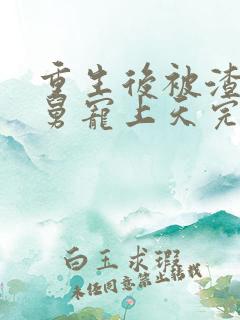 重生後被渣
舅寵上天完
白玉求瑕
未经同意禁止转载